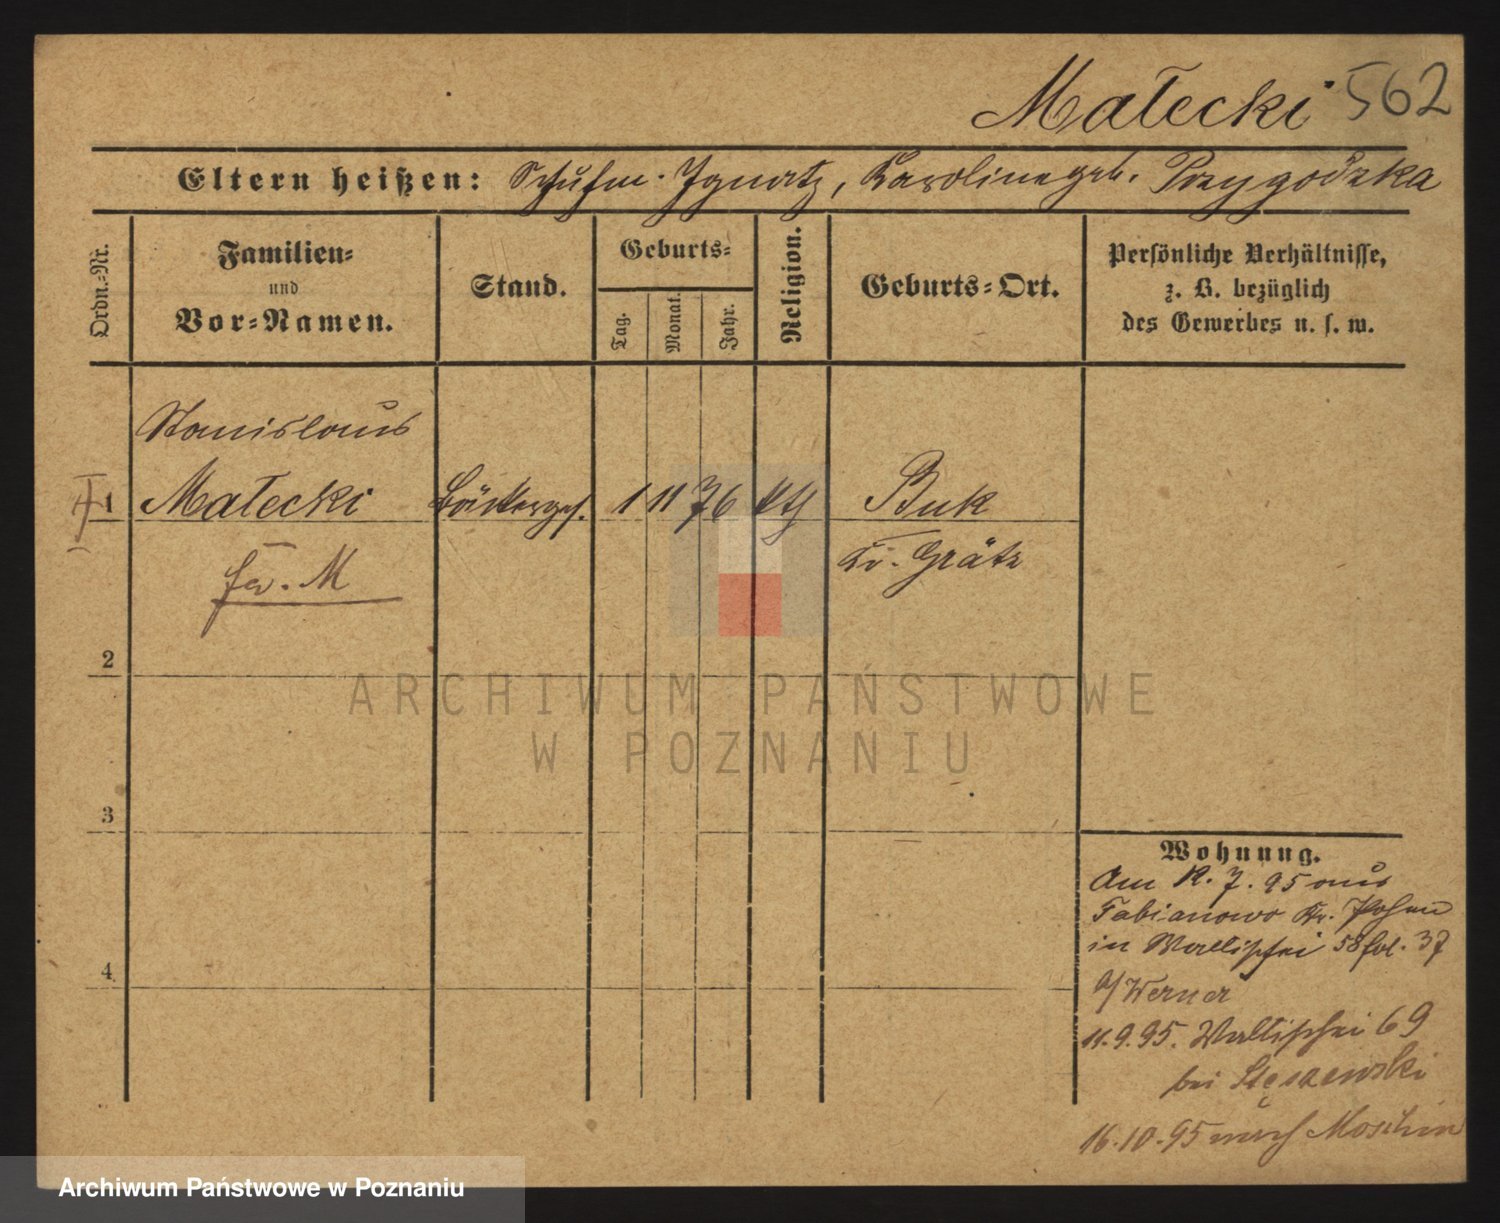 Małecki 562
Eltern heißen: Schuhm. Ignatz, Karoline geb. Przygodzka
Ordn.-Nr.
Familien-
und
Vor-Namen.
Stand.
Geburts-
Tag.
Monat.
Jahr.
Religion.
Geburts-Ort.
Persönliche Verhältnisse,
z. B. bezüglich
des Gewerbes u. s. w.
Stanislaus
1 Małecki Bäckerges. 1 11 76 kth Buk
Kr. Grätz
fr. M
2
ARCHIWUM PAŃSTWOWE
W POZNANIU
3
4
Wohnung.
Am 12. 7. 95 aus
Fabianowo Kr. Posen
in Wallischei 58 fol. 37
b/ Werner
11.9.95. Wallischei 69
bei Stęszewski
16.10.95 nach Moschin
Archiwum Państwowe w Poznaniu